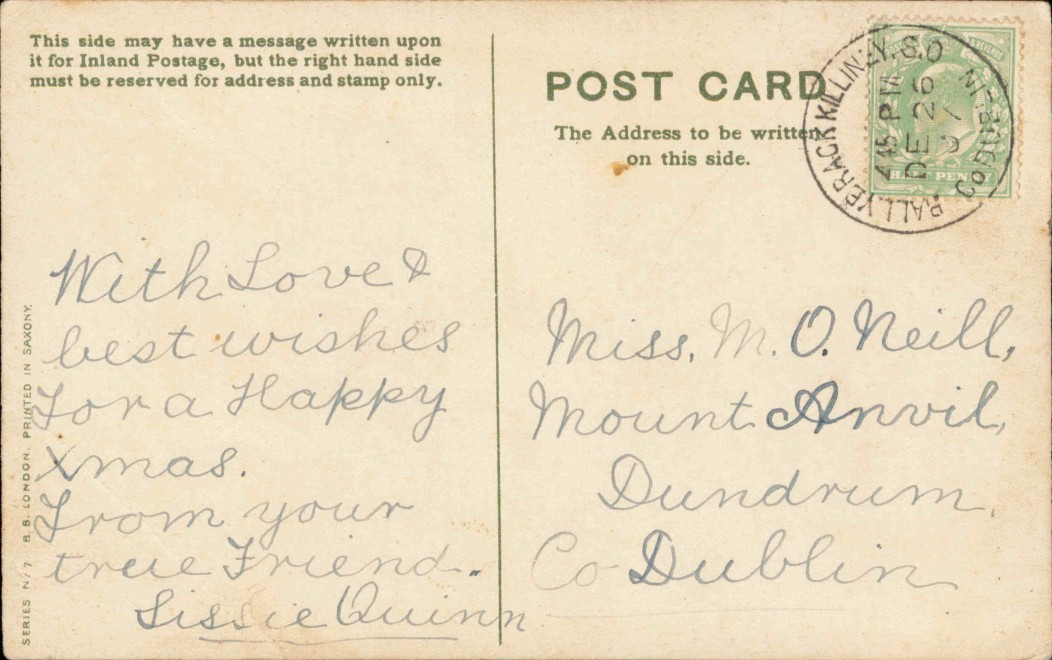 This side may have a message written upon
it for Inland Postage, but the right hand side
must be reserved for address and stamp only.
POST CARD
The Address to be written
on this side.
BALLYBRACK KILLINEY. S.O
Co DUBLIN
4 45 PM
DE 26
HALF PENNY
With Love &
best wishes
For a Happy
Xmas.
From your
true Friend.
Lissie Quinn
Miss. M. O. Neill,
Mount Anvil,
Dundrum,
Co Dublin
SERIES N/7 B.B. LONDON. PRINTED IN SAXONY.